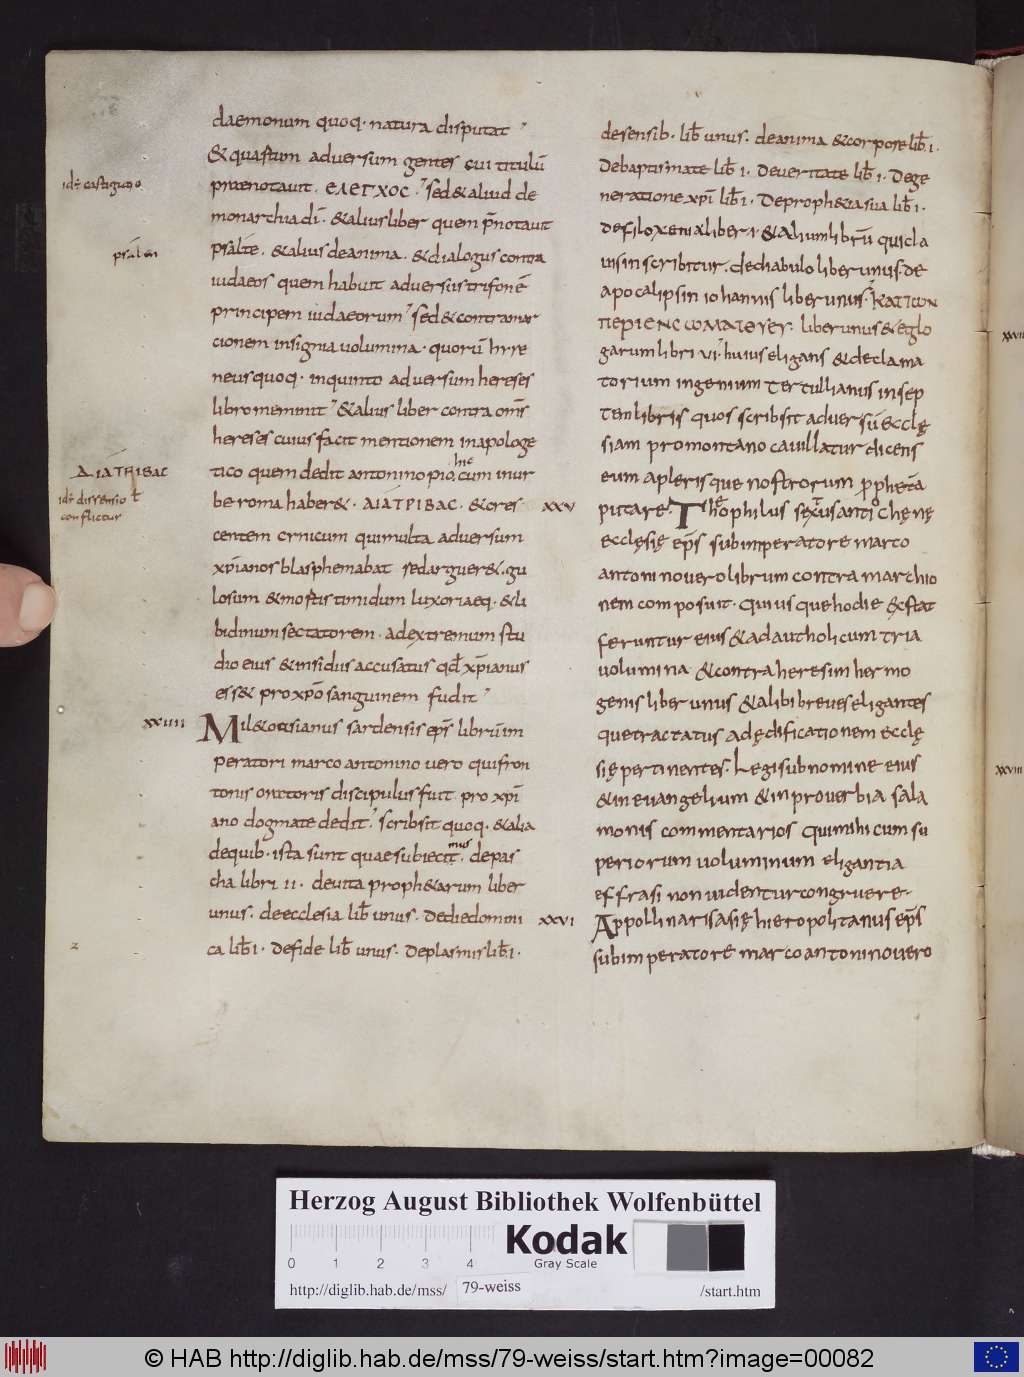 daemonum quoq· natura disputat
& quartum adversum gentes cui titulū
praenotavit · ΕΛΕΓΧΟC · sed & aliud de
monarchia dī · & alius liber quem p̄notavit
psalte · & alius de anima · & dialogus contra
iudaeos quem habuit adversus trifonē
principem iudaeorum sed & contra mar
cionem insignia volumina · quorū hire
neus quoq· in quinto adversum hereses
libro meminit & alius liber contra om̄s
hereses cuius facit mentionem in apologe
tico quem dedit antonino pio, hic cum in ur
be roma haber& · ΔΙΑΤΡΙΒΑC · & cres
centem cynicum qui multa adversum
xp̄ianos blasphemabat sed arguer& · gu
losum & mortis timidum luxoriaeq· & li
bidinum sectatorem · ad extremum stu
dio eius & insidiis accusatus qd̄ xp̄ianus
ess& pro xp̄o sanguinem fudit
XXIIII Mil&o asianus sardensis ep̄s librū im
peratori marco antonino vero qui fron
tonis oratoris discipulus fuit pro xp̄i
ano dogmate dedit · scribsit quoq· & alia
de quib· ista sunt quae subiecimus · de pas
cha libri II · de vita proph&arum liber
unus · de ecclesia lib̄ unus · de die domini
ca lib̄ I · de fide lib̄ unus · de plasmis lib̄ I ·
idē castigatio
psalten
ΔΙΑΤΡΙΒΑC
idē dissensio ł
conflictus
z
de sensib· lib̄ unus · de anima & corpore lib̄ I ·
de baptismate lib̄ I · de veritate lib̄ I · de ge
neratione xp̄i lib̄ I · de proph&ia sua lib̄ I ·
de filoxenia liber I · & alium librū qui cla
vis inscribitur · de diabulo liber unus · de
apocalipsin iohannis liber unus · ΚΑΤΙΩΝ
ΠΕΡΙΕΝCΩΜΑΤΟΥΘΥ · liber unus & eglo
garum libri VI · huius eligans & declama
torium ingenium tertullianus in sep
tem libris quos scribsit adversū ecclę
siam pro montano cavillatur dicens
eum a plerisque nostrorum prophetā
putare
XXV Theophilus sextus antiochęnę
ecclęsię ep̄s sub imperatore marco
antonino vero librum contra marchio
nem composuit · qui usque hodie &stat
feruntur eius & ad autholicum tria
volumina & contra heresim hermo
genis liber unus & alibi breves eligantes
que tractatus ad ędificationem ecclę
się pertinentes · Legi sub nomine eius
& in evangelium & in proverbia sala
monis commentarios qui mihi cum su
periorum voluminum eligantia
effrasi non videntur congruere ·
XXVI Appollinaris asię hieropolitanus ep̄s
sub imperatore marco antonino vero
XXVII
XXVIII
Herzog August Bibliothek Wolfenbüttel
0 1 2 3 4
Kodak
Gray Scale
http://diglib.hab.de/mss/ 79-weiss /start.htm
© HAB http://diglib.hab.de/mss/79-weiss/start.htm?image=00082